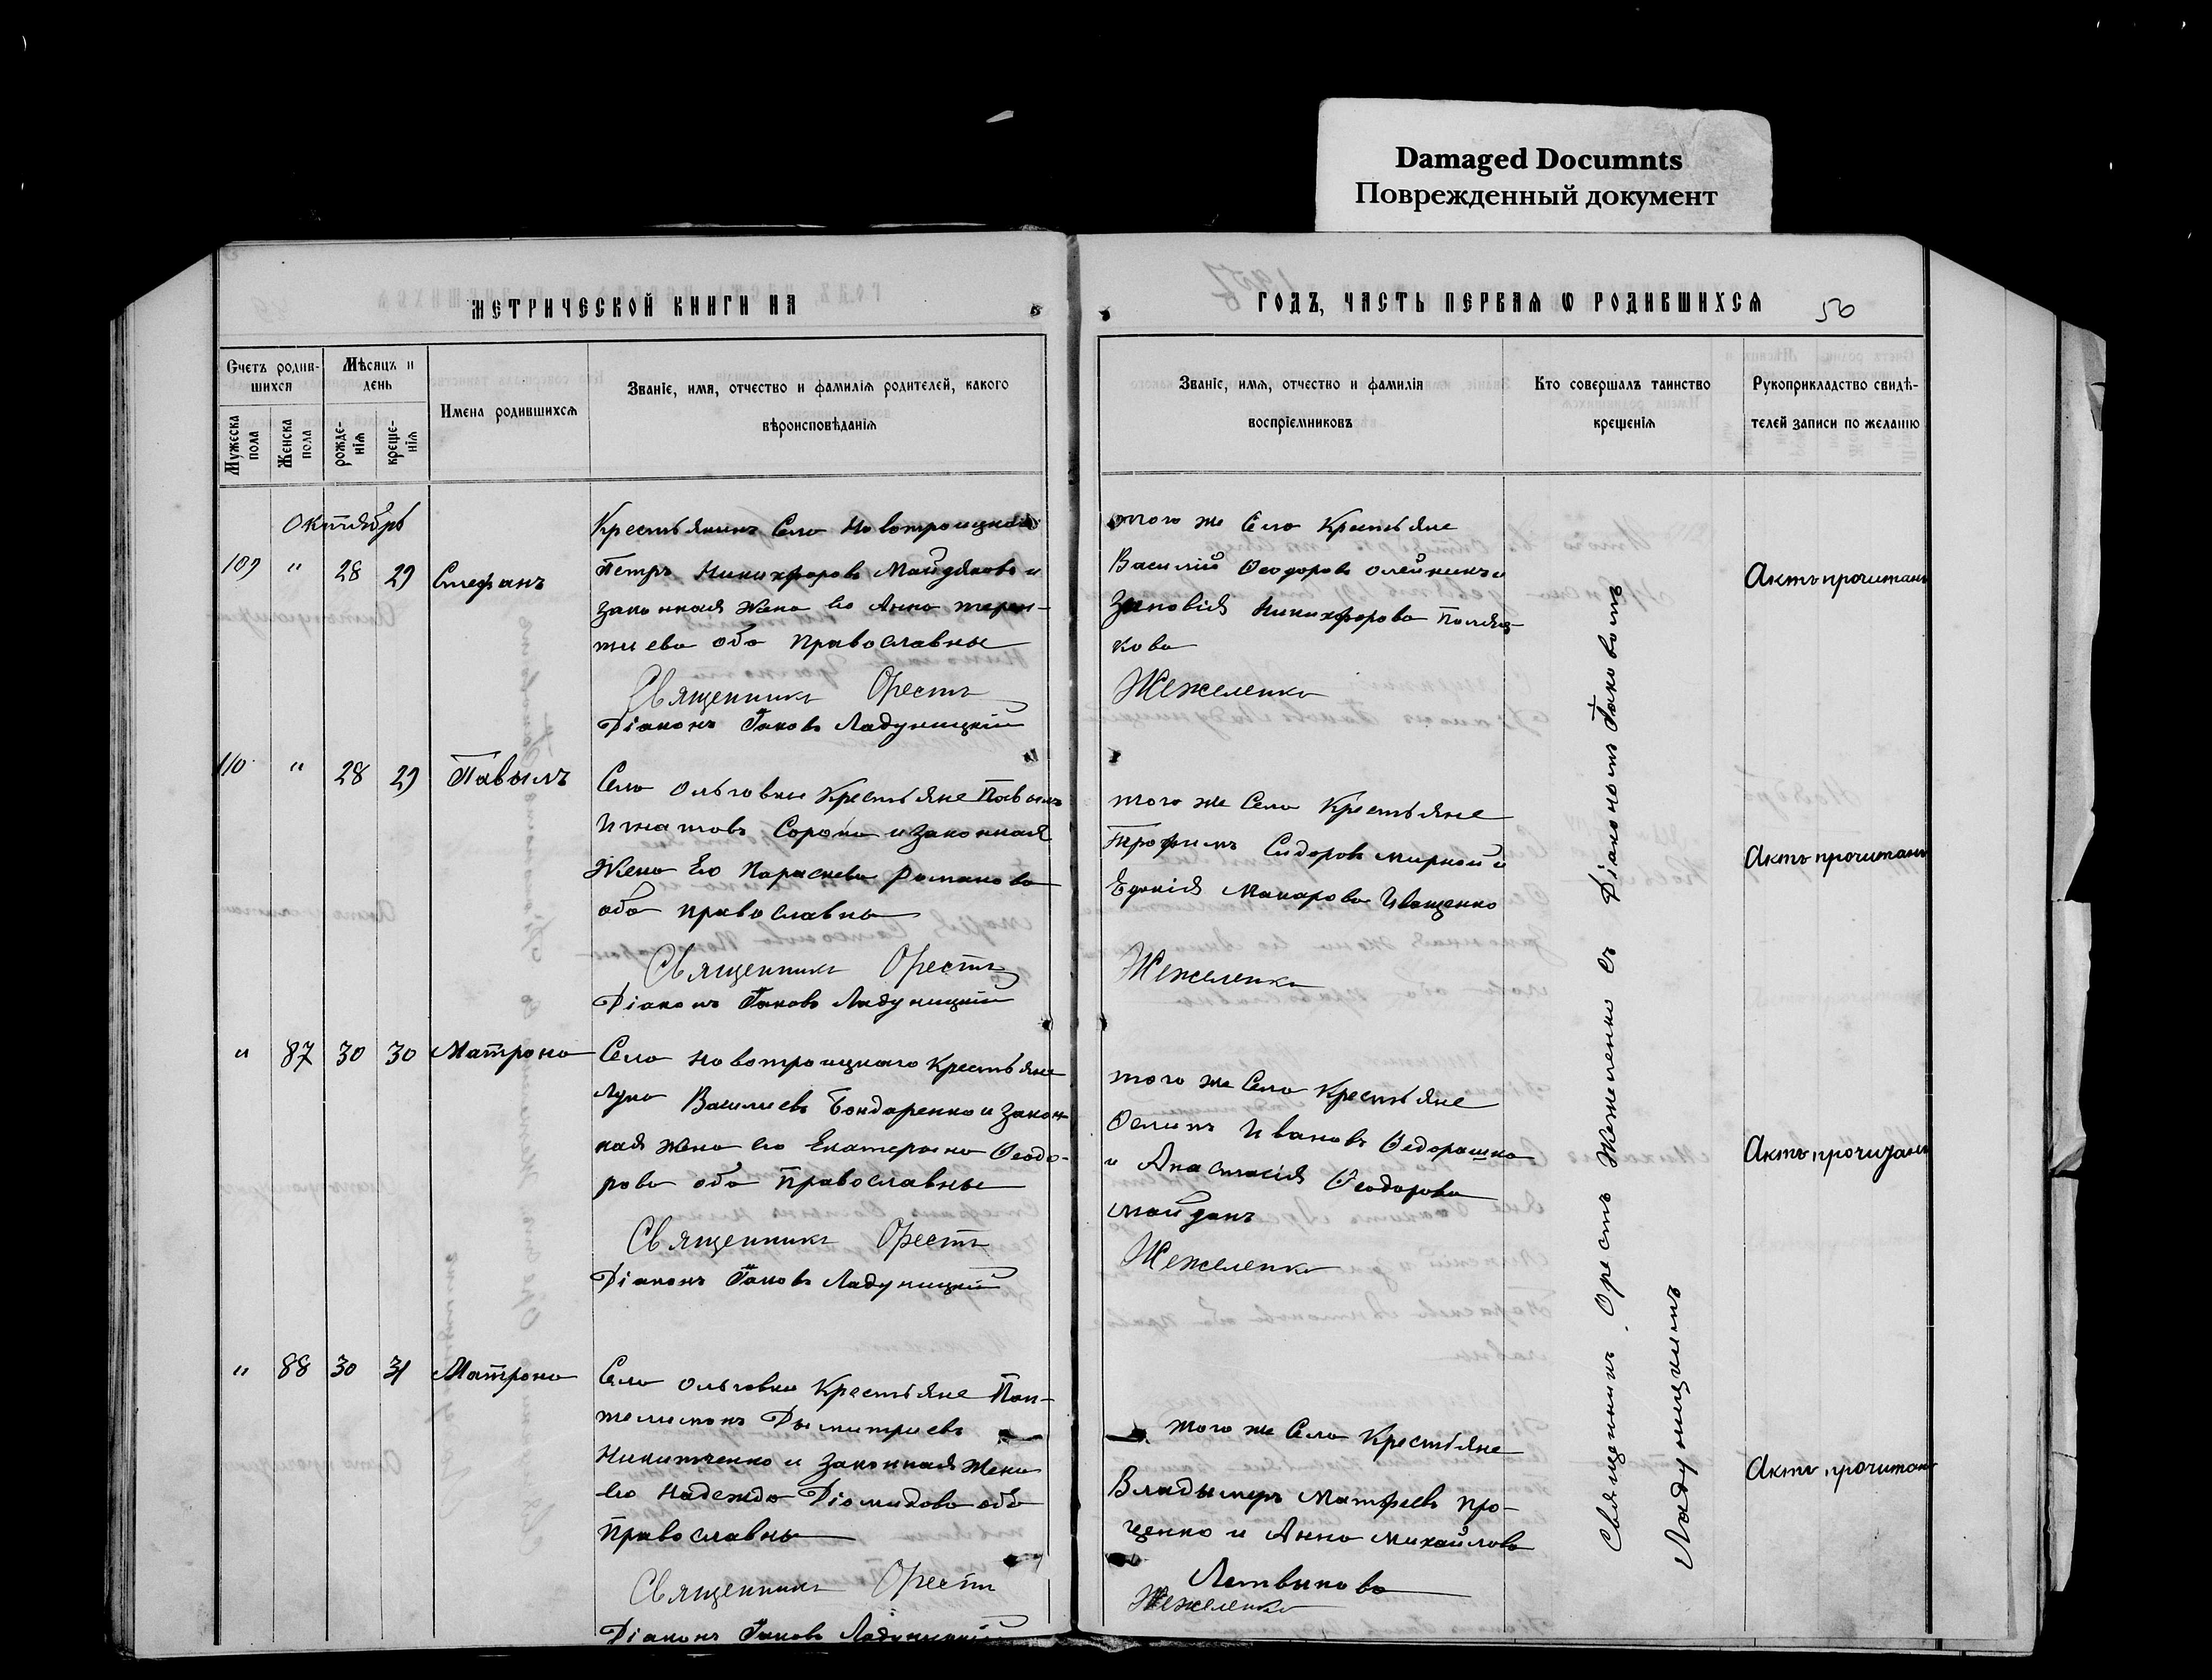 Damaged Documnts
Поврежденный документ
МЕТРИЧЕСКОЙ КНИГИ НА
ГОДЪ, ЧАСТЬ ПЕРВАЯ Ѡ РОДИВШИХСЯ
50
Счетъ родив-
шихся
Мѣсяцъ и
день
Мужеска
пола
Женска
пола
рожде-
нія
креще-
нія
Имена родившихся
Званіе, имя, отчество и фамилія родителей, какого
вѣроисповѣданія
Званіе, имя, отчество и фамилія
воспріемниковъ
Кто совершалъ таинство
крещенія
Рукоприкладство свидѣ-
телей записи по желанію
Октябрь
109 " 28 29 Стефанъ
Крестьянинъ Села Новотроицкаго
Петръ Никифоровъ Майдановъ и
законная жена его Анна терен-
тиева оба православные
Священникъ Орестъ
Діаконъ Іаковъ Ладуницкій
того же Села Крестьяне
Василій Ѳеодоровъ Олейникъ и
Зиновія Никифорова Поляд-
кова
Жежеленко
Актъ прочитанъ
110 " 28 29 Павылъ
Села Ольговки Крестьяне Павылъ
Игнатовъ Сорока и законная
Жена Его Параскева Романова
оба православны
Священникъ Орестъ
Діаконъ Іаковъ Ладуницкій
того же Села Крестьяне
Трофимъ Сидоровъ мирной и
Евдокія Макарова Иващенко
Жежеленко
Актъ прочитанъ
" 87 30 30 Матрона
Села Новотроицкаго Крестьяне
Лука Василиевъ Бондаренко и закон-
ная жена его Екатерина Ѳеодо-
рова оба Православные
Священникъ Орестъ
Діаконъ Іаковъ Ладуницкій
того же Села Крестьяне
Осипъ Ивановъ Ѳедорашко
и Анастасія Ѳеодорова
майданъ
Жежеленко
Актъ прочитанъ
" 88 30 31 Матрона
Села Ольговки Крестьяне Пан-
телимонъ Дымитриевъ
Никитченко и Законная жена
его Надежда Діомидова оба
Православны
Священникъ Орестъ
Діаконъ Іаковъ Ладуницкій
того же Села Крестьяне
Владымеръ Матфеевъ Про-
ценко и Анна Михайлова
Летвынова
Жежеленко
Актъ прочитанъ
Священникъ Орестъ Жежеленко съ Діакономъ Іаковомъ
Ладуницкимъ